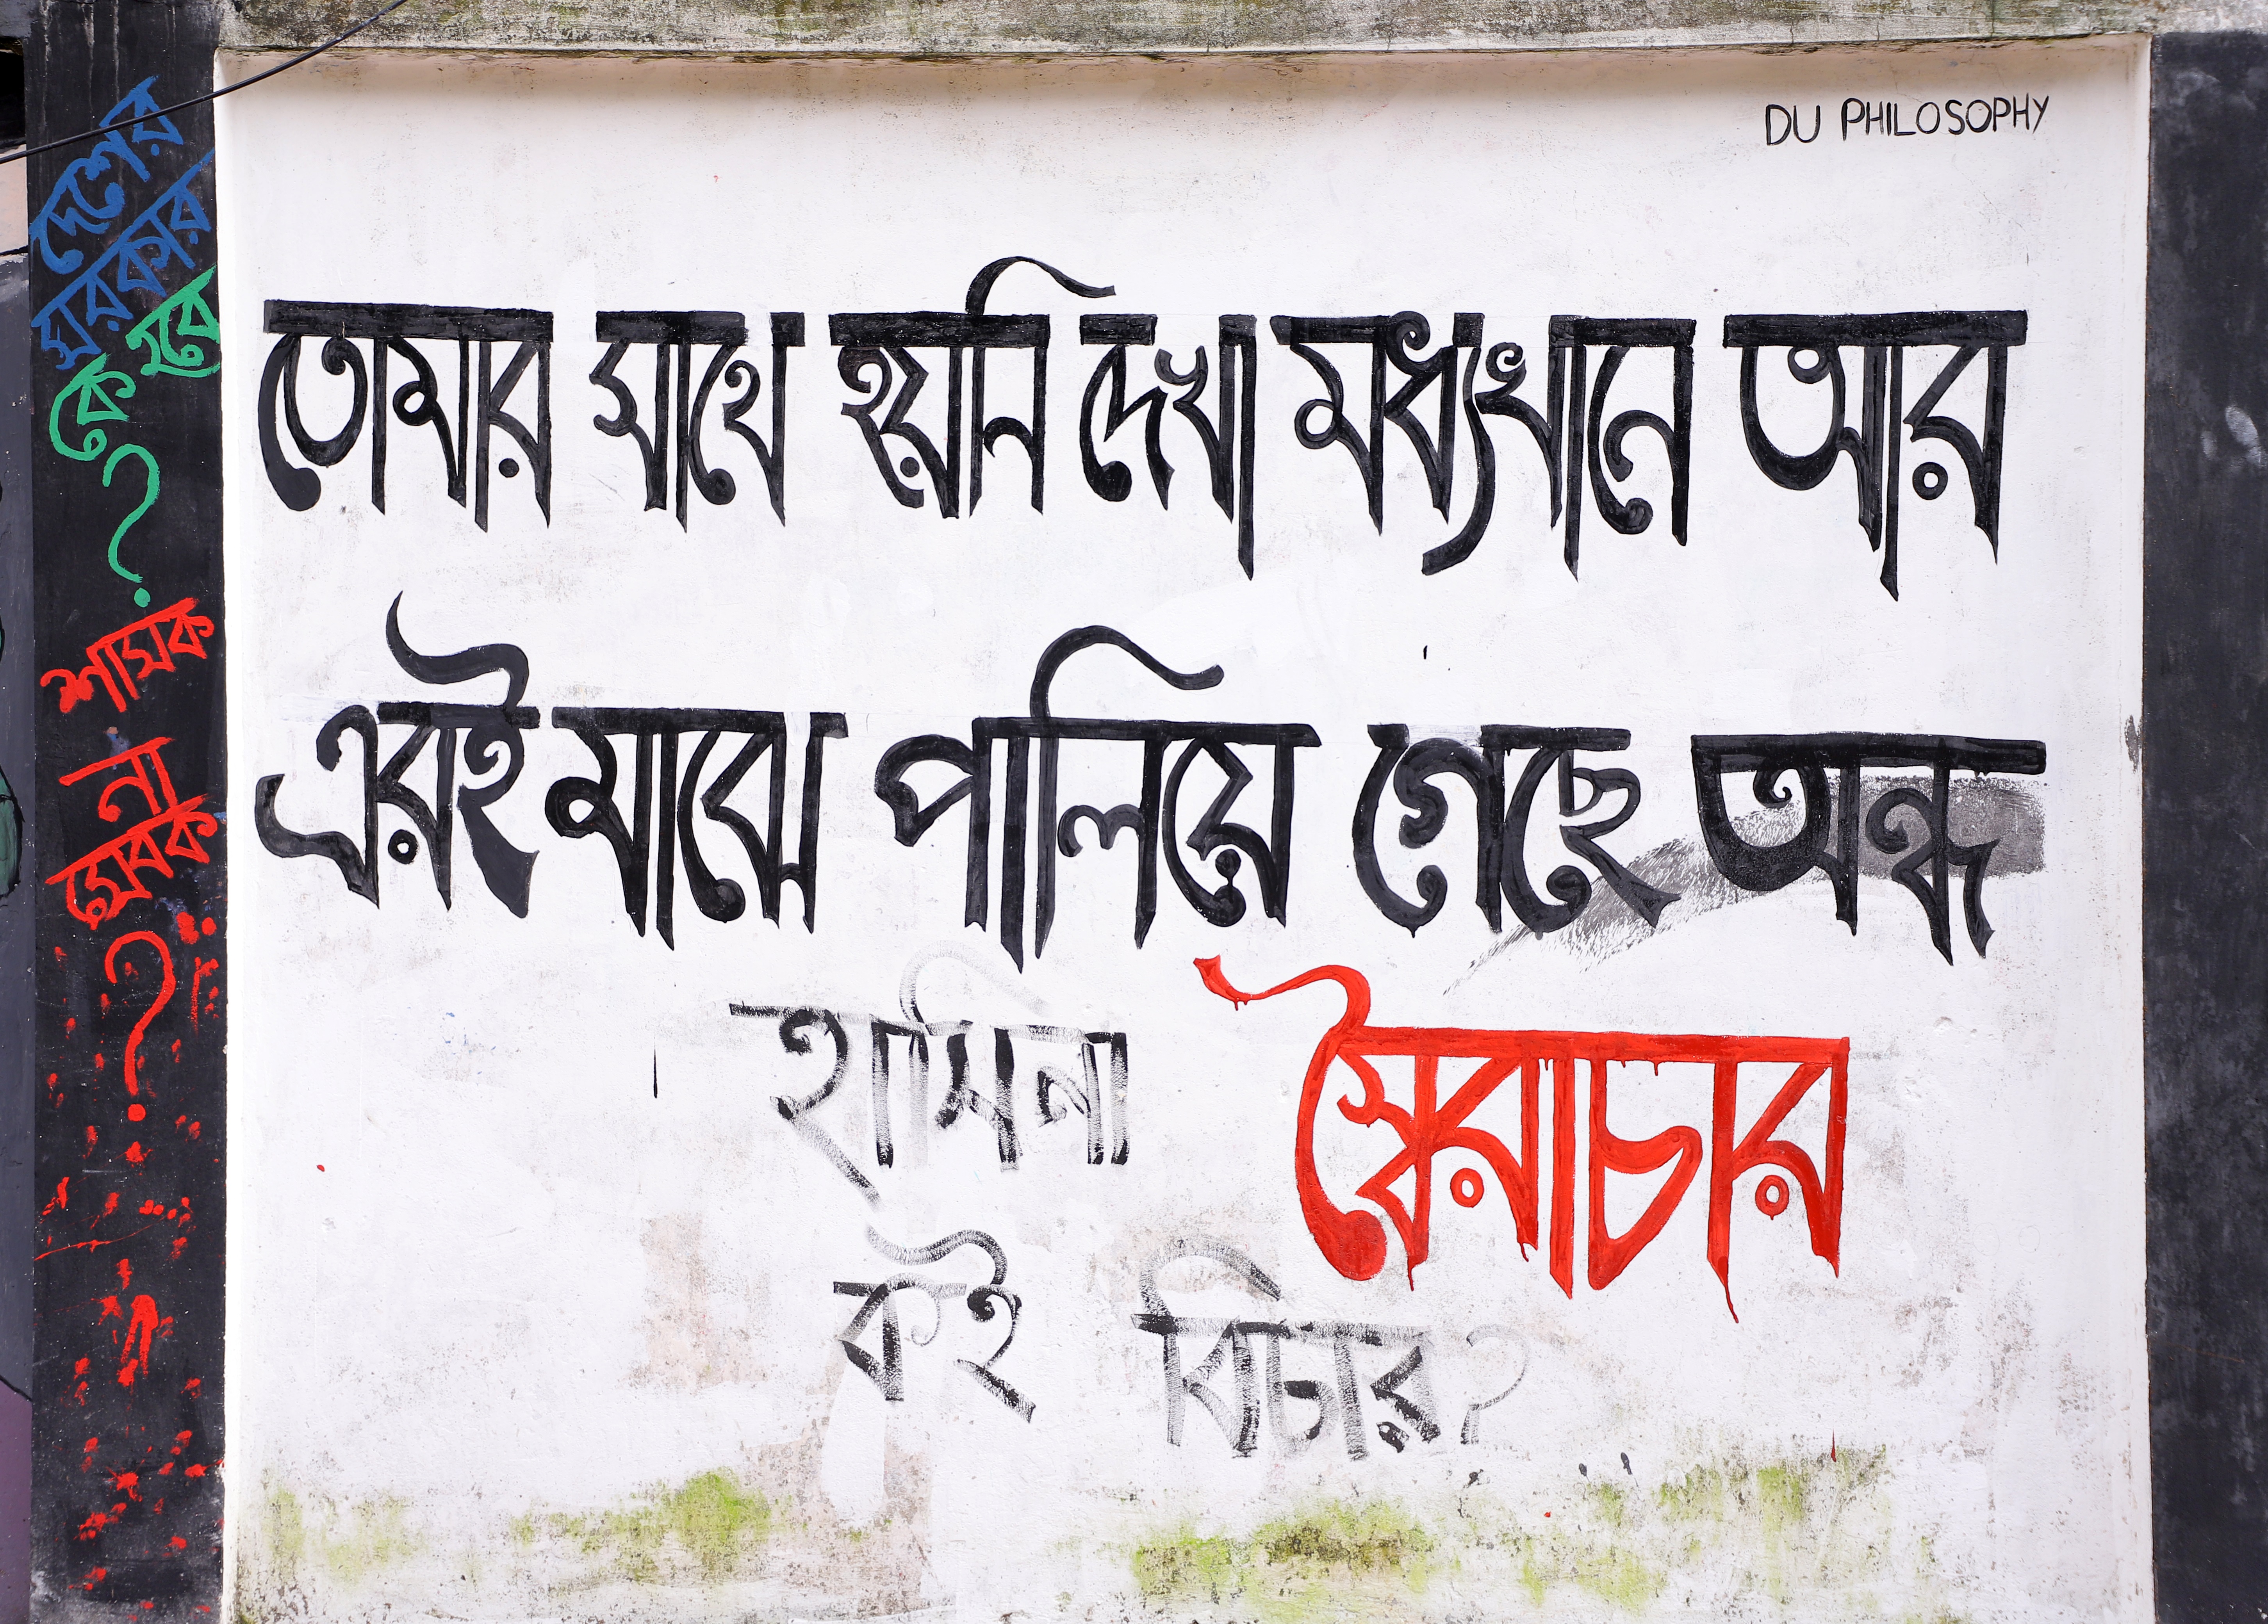 DU PHILOSOPHY
তোমার সাথে হয়নি দেখা মধ্যখানে আর
এরই মাঝে পালিয়ে গেছে অন্ধ
স্বৈরাচার
হাসিনা
কই বিচার?
দেশের
সরকার
হবে
কে
?
শাসক
না
সেবক
?